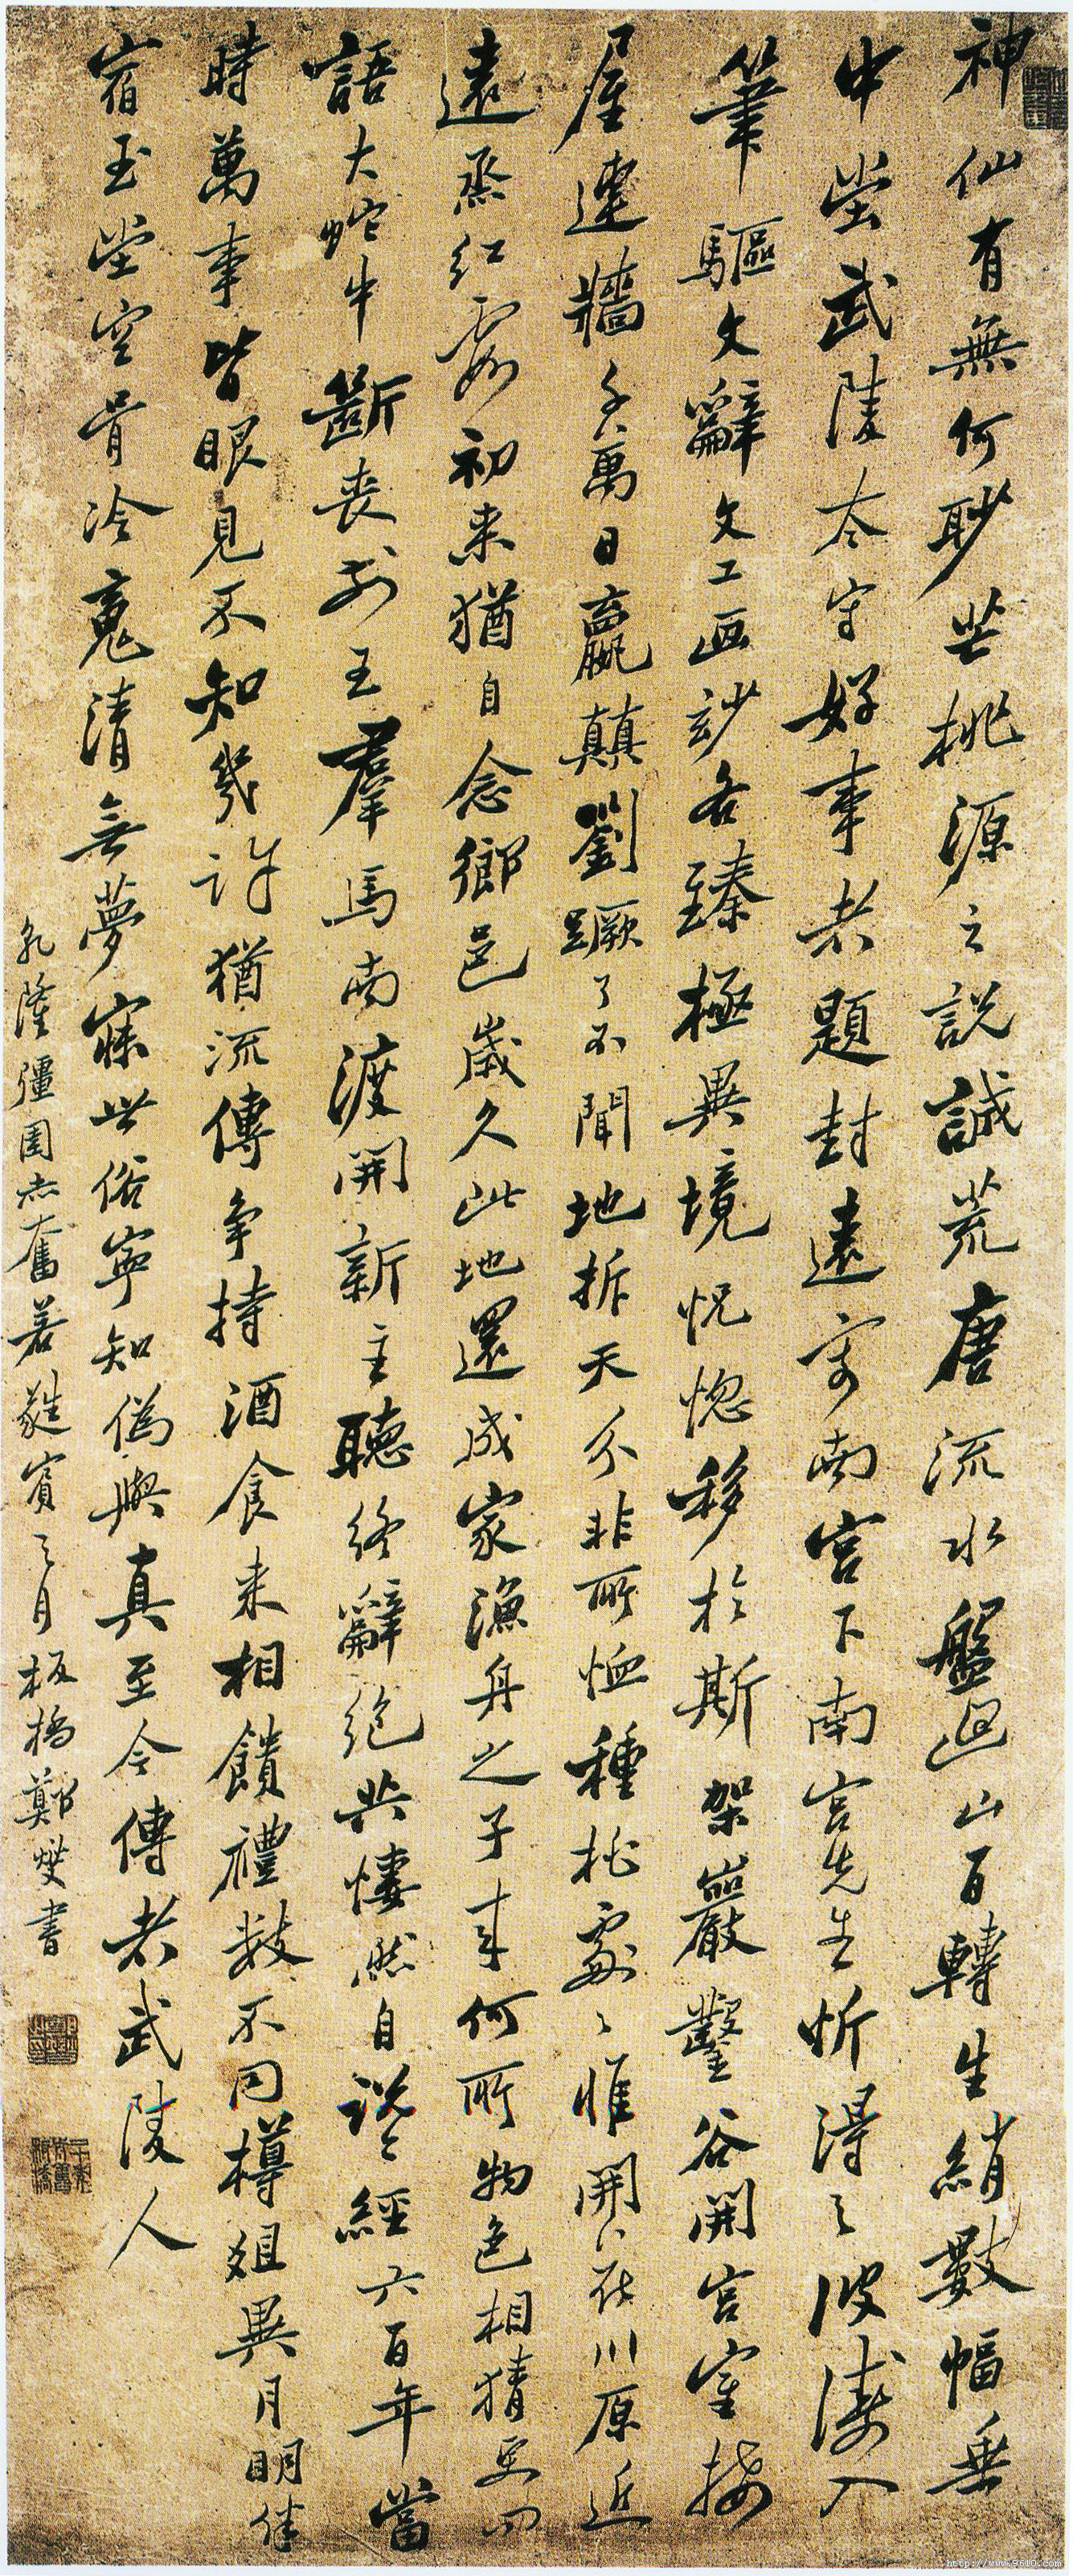 神仙有無何眇芒桃源之説誠荒唐流水盤迴山百轉生綃數幅垂
中堂武陵太守好事者題封遠寄南宮下南宮先生忻得之波濤入
筆驅文辭文工画妙各臻極異境恍惚移於斯架巖鑿谷開宮室接
屋連牆千萬日嬴顛劉蹶了不聞地拆天分非所恤種桃處〻惟開花川原近
遠烝紅霞初来猶自念鄉邑歲久此地還成家漁舟之子来何所物色相猜更問
語大蛇中斷喪前王羣馬南渡開新主聽終辭絶共悽然自説經六百年當
時萬事皆眼見不知幾許猶流傳争持酒食来相饋禮數不同樽俎異月明伴
宿玉堂空骨冷魂清無夢寐世俗寧知偽與真至今傳者武陵人
乾隆彊圉赤奮若蕤賓之月板橋鄭燮書
http://www.9610.com